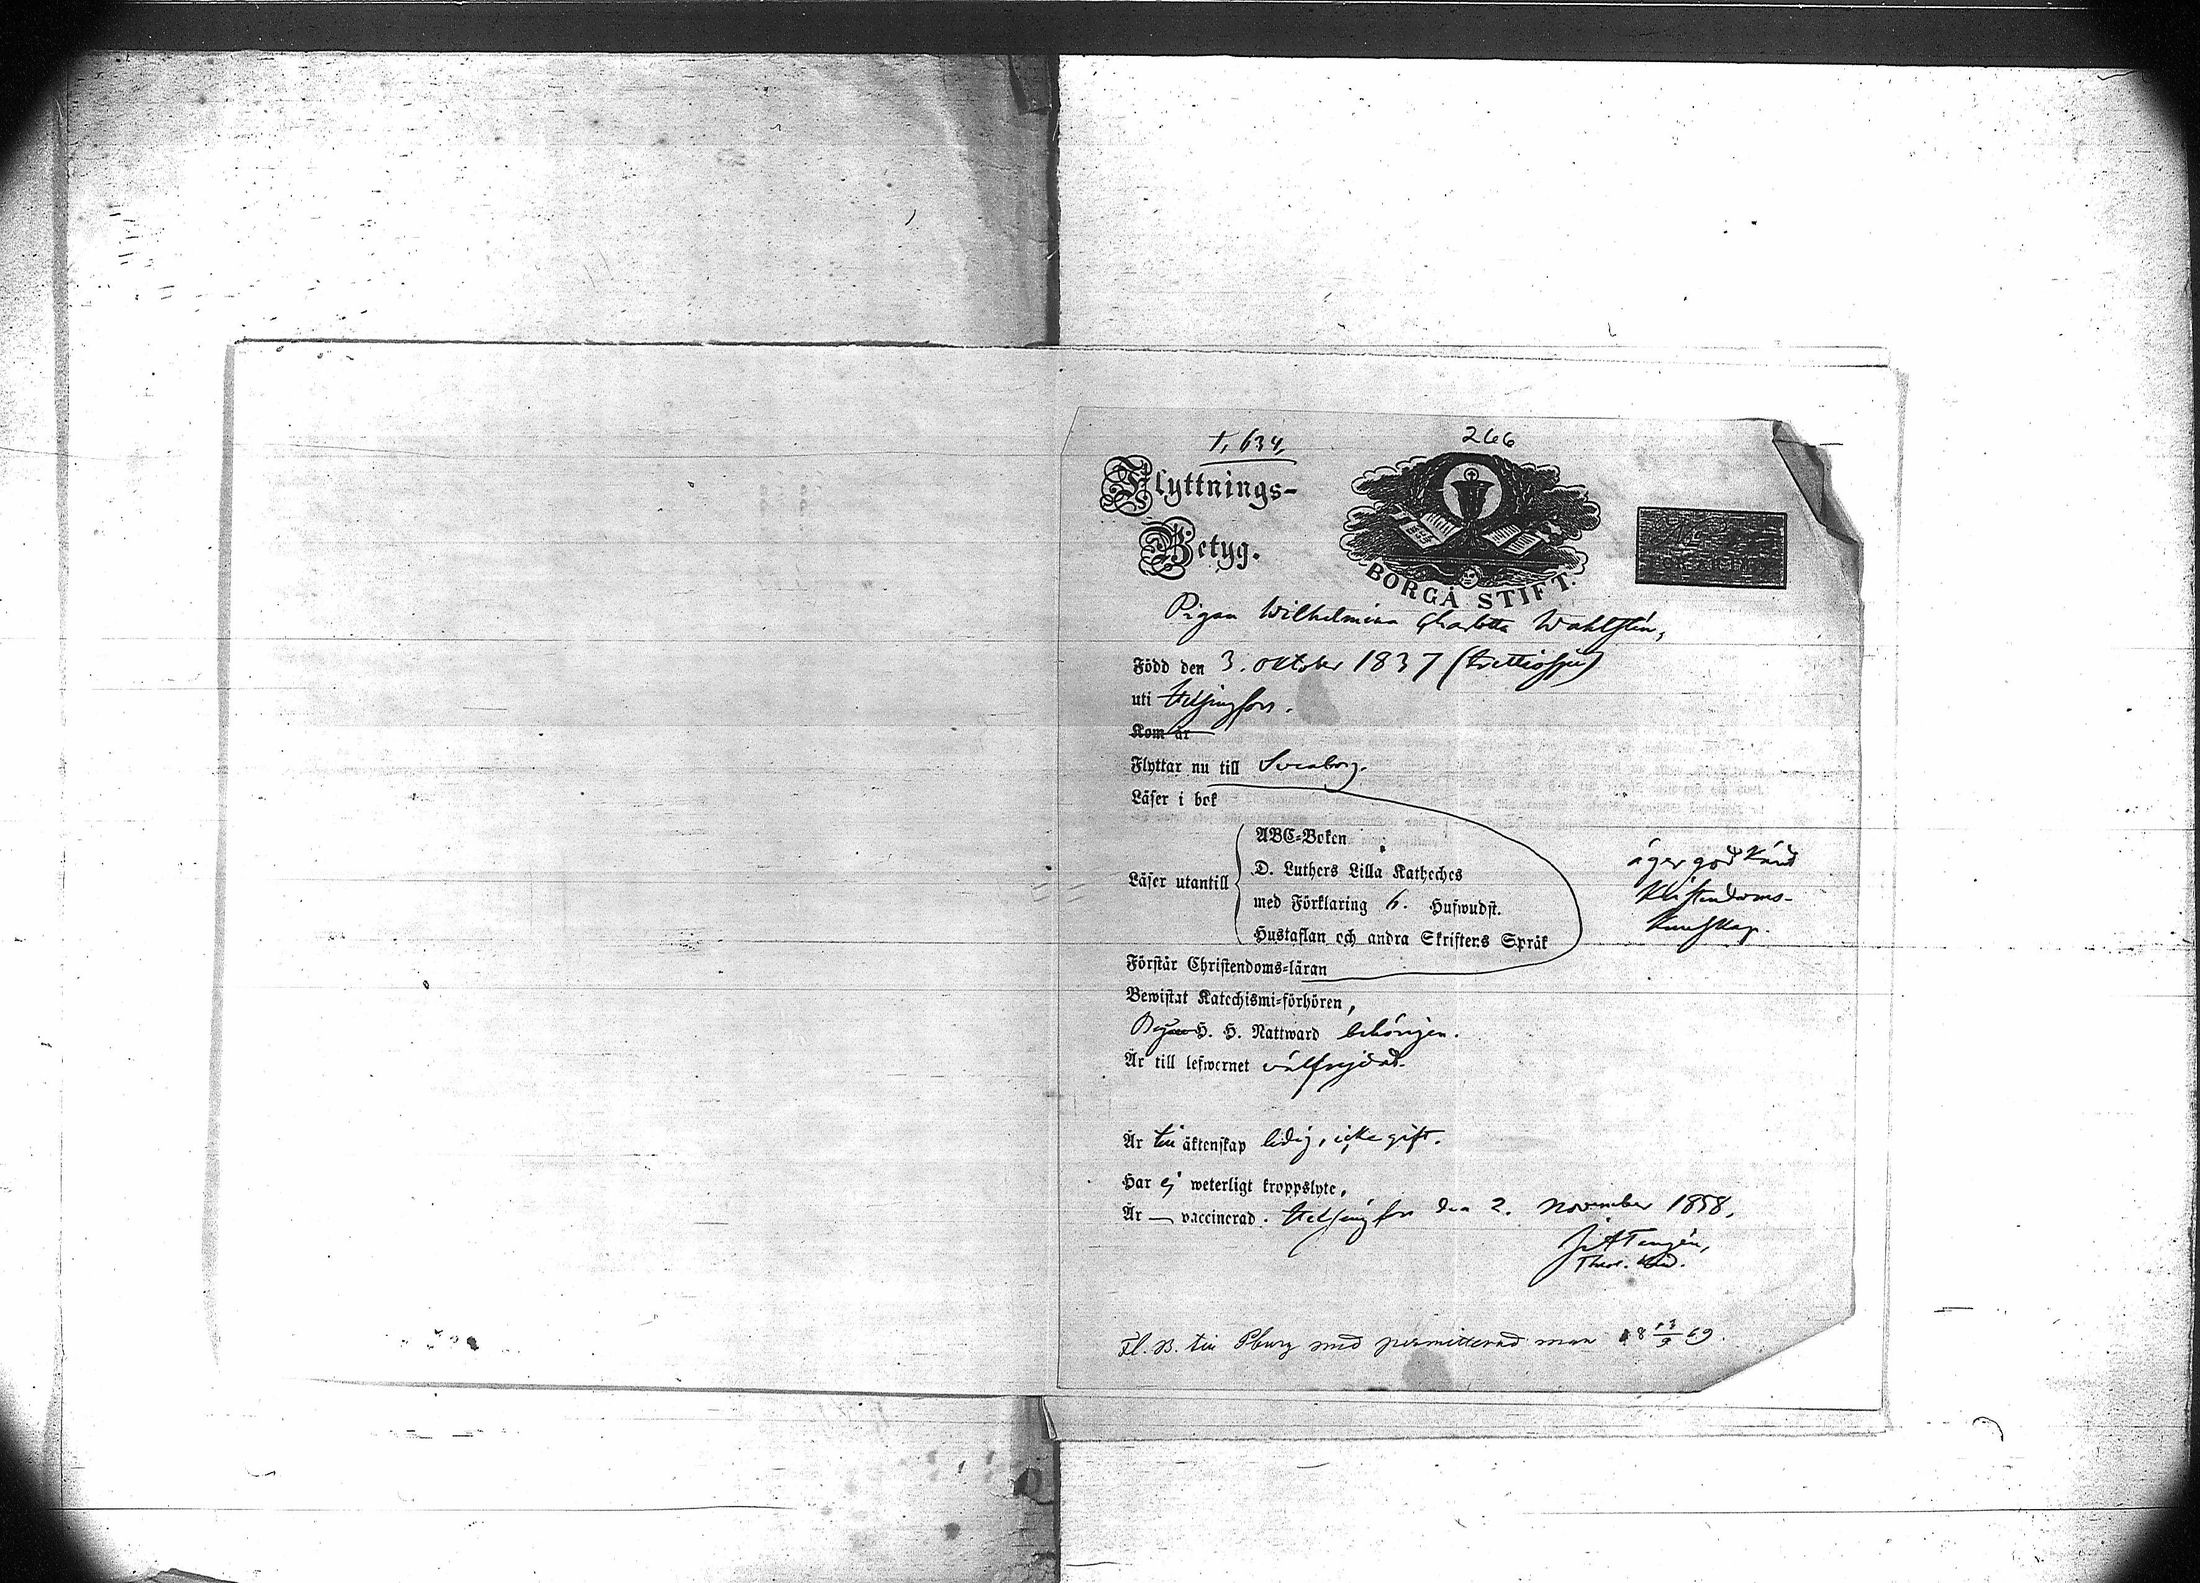 266
Flyttnings-
Betyg.
BORGÅ STIFT.
Pigan Wilhelmina Charlotta Wahlstén,
Född den 3. oktober 1837 (trettiosju)
uti Helsingfors.
Kom år
Flyttar nu till Sveaborg.
Läser i bok
Läser utantill
ABC-Boken
D. Luthers Lilla Katheches
med Förklaring 6. Hufwudst.
Hustaflan och andra Skriftens Språk
äger godkänd
Kristendoms-
kunskap.
Förstår Christendoms-läran
Bewistat Katechismi-förhören,
H. H. Nattward behörigen.
Är till lefwernet välfrejdad.
Är till äktenskap ledig, icke gift.
Har ej weterligt kroppslyte,
Är — vaccinerad. Helsingfors den 2. November 1858.
Fl. B. till Pburg med permitterad man 18 13/9 69.